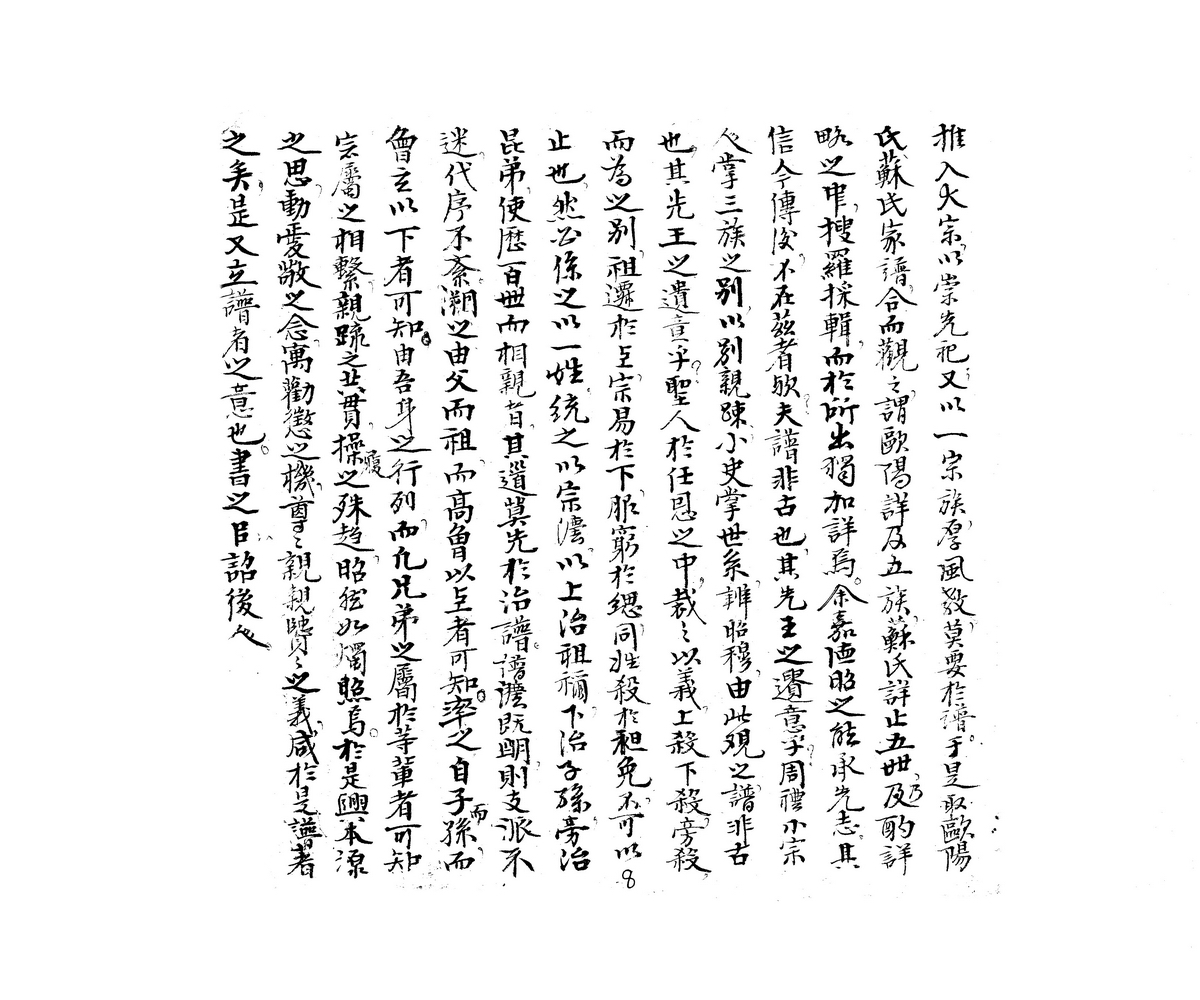 推入大宗以崇先祀又以一宗族厚風教莫要於譜于是取歐陽
氏蘇氏家譜合而觀之謂歐陽詳及五族蘇氏詳止五世及乃酌詳
略之中搜羅採輯而於所出獨加詳焉余嘉陋昭之能承先志其
信今傳後不在茲者歟夫譜非古也其先王之遺意乎周禮小宗
人掌三族之別以別親踈小史掌世系辨昭穆由此观之譜非古
也其先王之遺意乎聖人於任恩之中裁之以義上殺下殺旁殺
而為之別祖遷於上宗易於下服窮於緦同姓殺於袒免不可以
止也然必係之以一姓統之以宗灋以上治祖禰下治子孫旁治
昆弟使歷百世而相親者其道莫先於治譜譜灋既明則支派不
迷代序不紊溯之由父而祖而高曾以上者可知率之自子而孫而
曾玄以下者可知由吾身之行列而凡兄弟之屬於等輩者可知
宗屬之相繫親疏之共貫操履之殊趋昭然如燭照焉於是興本源
之思動愛敬之念寓勸懲之機尊〻親親賢〻之義咸於是譜者
之矣是又立譜者之意也書之曰詔後人
8